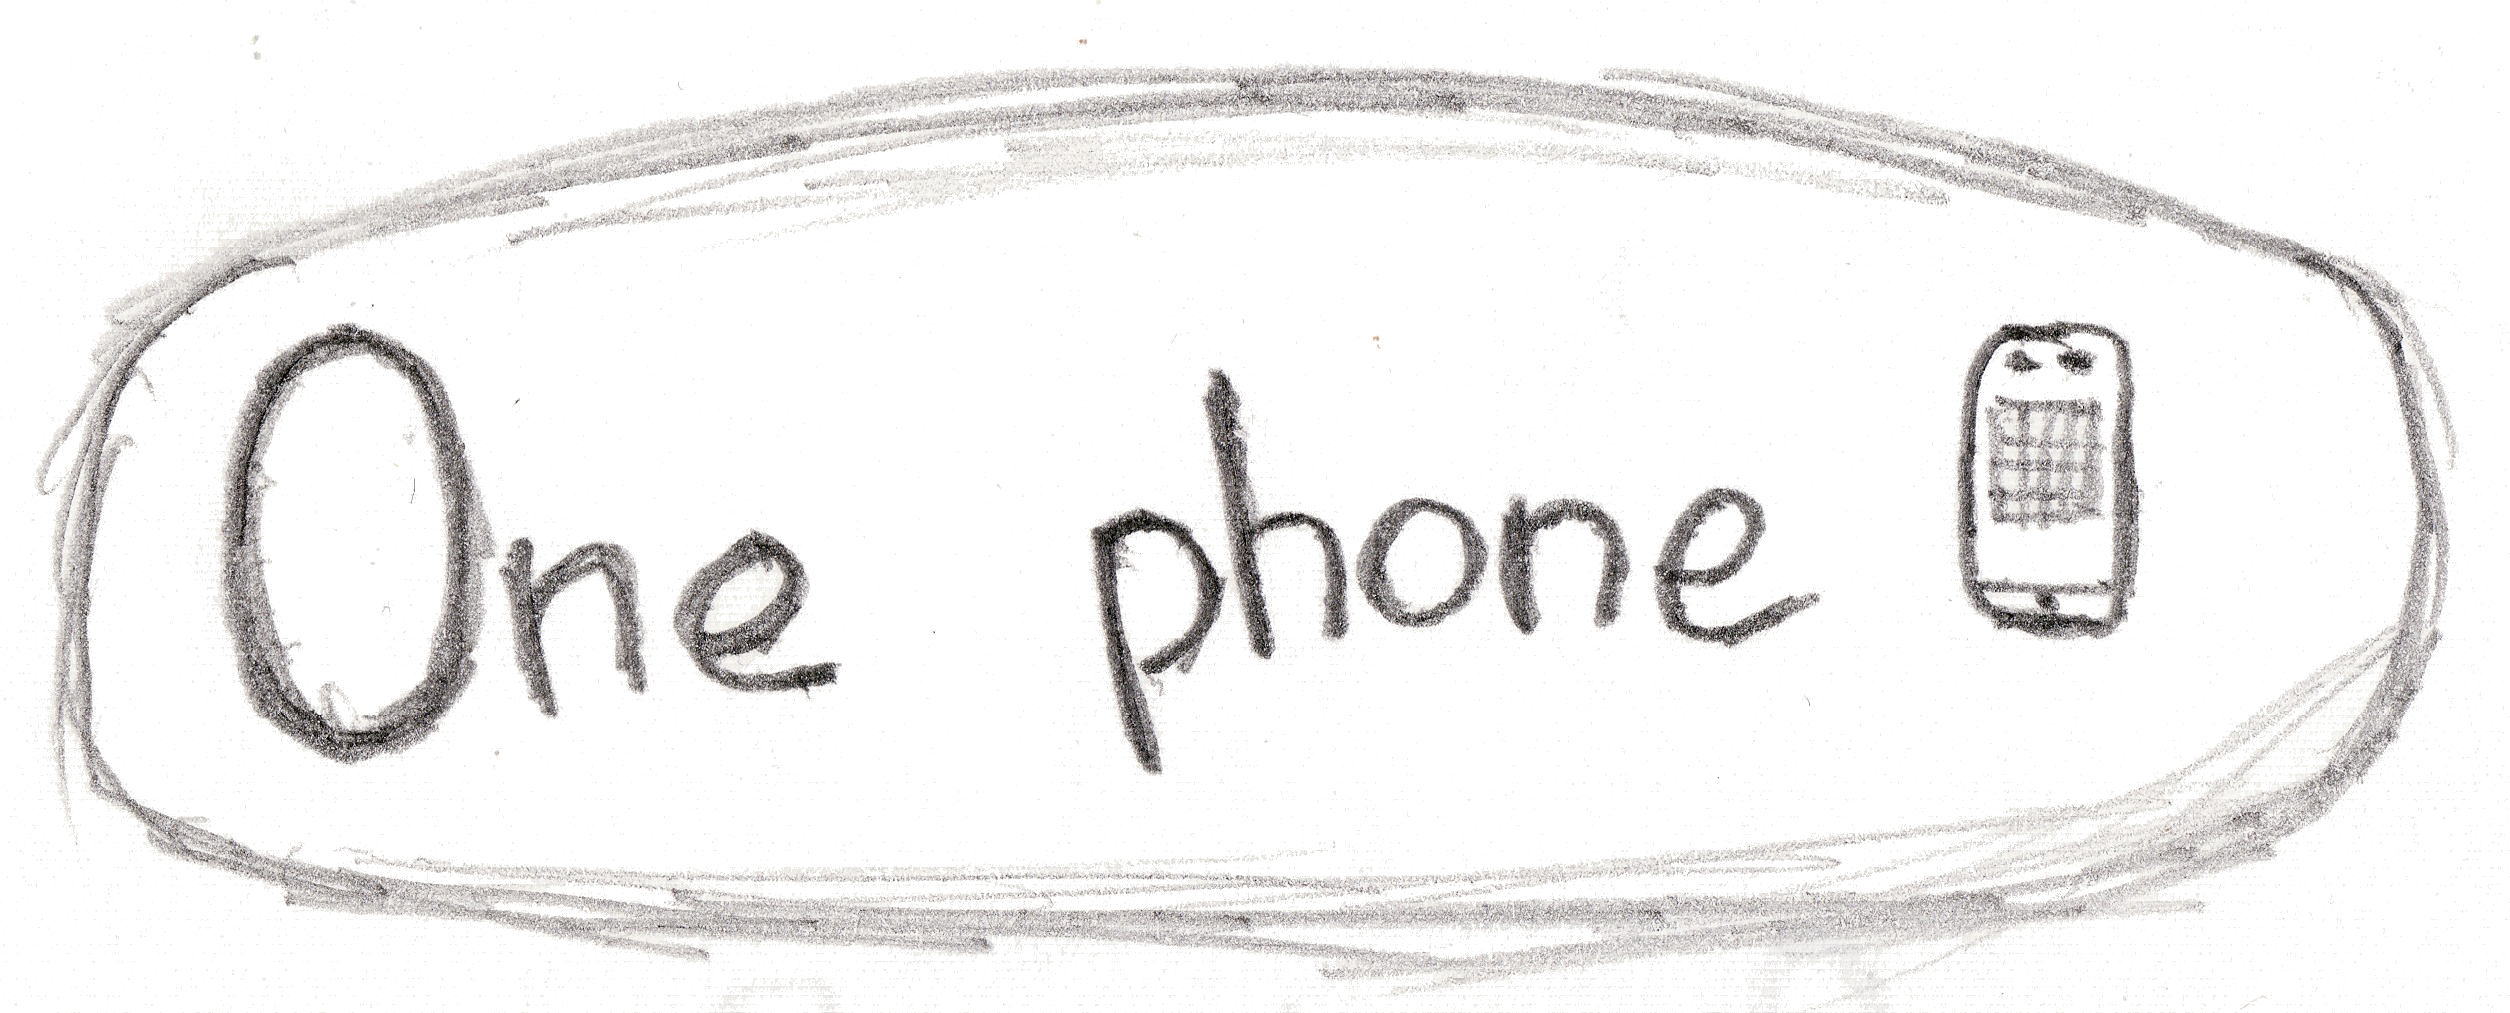 One phone